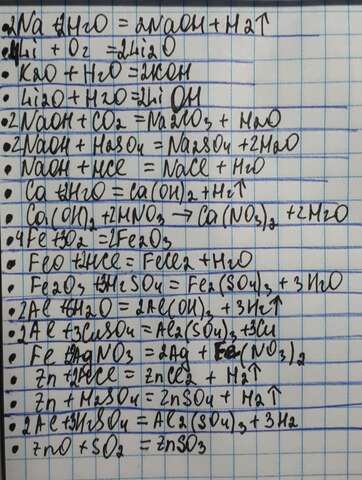 2Na + 2H2O = 2NaOH + H2↑
• 4Li + O2 = 2Li2O
• K2O + H2O = 2KOH
• Li2O + H2O = 2LiOH
• 2NaOH + CO2 = Na2CO3 + H2O
• 2NaOH + H2SO4 = Na2SO4 + 2H2O
• NaOH + HCl = NaCl + H2O
• Ca + 2H2O = Ca(OH)2 + H2↑
• Ca(OH)2 + 2HNO3 → Ca(NO3)2 + 2H2O
• 4Fe + 3O2 = 2Fe2O3
• FeO + 2HCl = FeCl2 + H2O
• Fe2O3 + 3H2SO4 = Fe2(SO4)3 + 3H2O
• 2Al + 6H2O = 2Al(OH)3 + 3H2↑
• 2Al + 3CuSO4 = Al2(SO4)3 + 3Cu
• Fe + 2AgNO3 = 2Ag + Fe(NO3)2
• Zn + 2HCl = ZnCl2 + H2↑
• Zn + H2SO4 = ZnSO4 + H2↑
• 2Al + 3H2SO4 = Al2(SO4)3 + 3H2
• ZnO + SO2 = ZnSO3